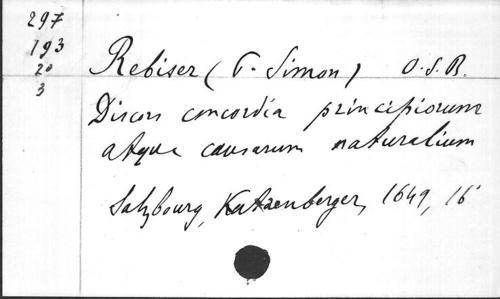 297
193
20
3
Rebiser (P. Simon) O.S.B.
Discors concordia principiorum
atque causarum naturalium
Salzbourg, Katzenberger, 1649, 16°